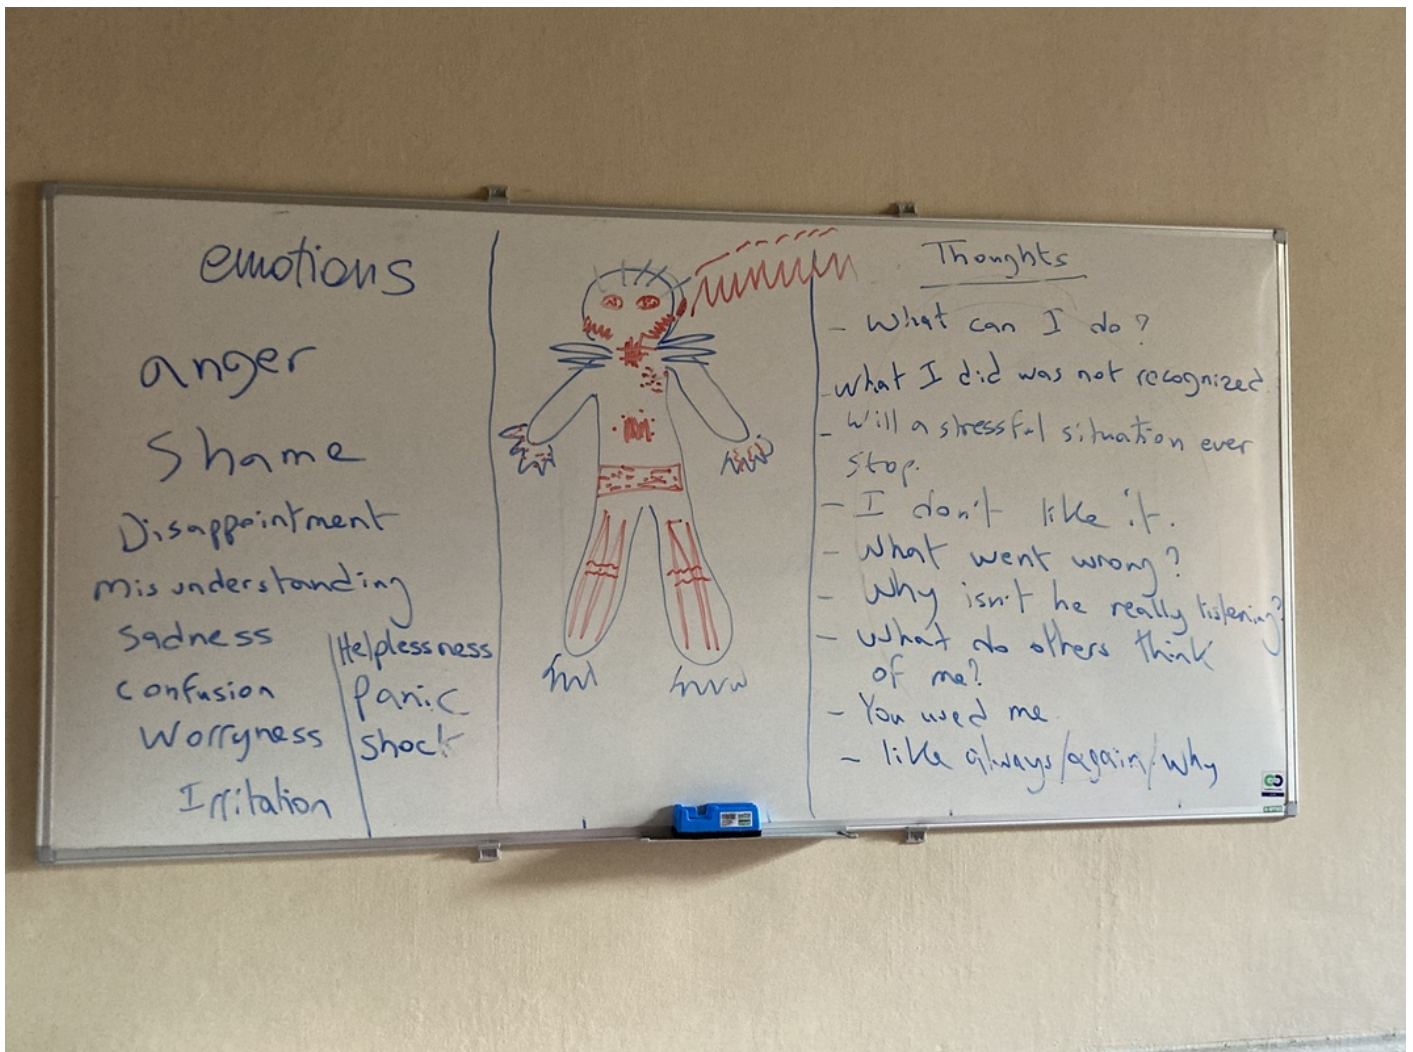 emotions
anger
Shame
Disappointment
misunderstanding
Sadness
confusion
Worryness
Irritation
Helplessness
Panic
Shock
Thoughts
- What can I do?
- What I did was not recognized
- Will a stressful situation ever
stop.
- I don't like it.
- What went wrong?
- Why isn't he really listening?
- What do others think
of me?
- You used me
- like always/again/why